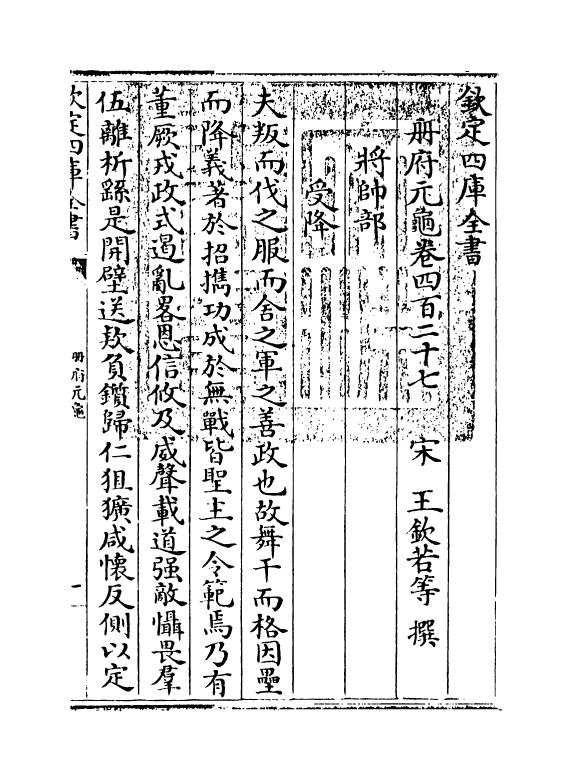 欽定四庫全書
冊府元龜卷四百二十七　宋　王欽若等　撰
將帥部
受降
夫叛而伐之服而舍之軍之善政也故舞干而格因壘
而降義著於招擕功成於無戰皆聖主之令範焉乃有
董厥戎政式遏亂畧恩信攸及威聲載道强敵懾畏羣
伍離析繇是開壁送欵負鑕歸仁狙獷咸懷反側以定
欽定四庫全書
冊府元龜
一